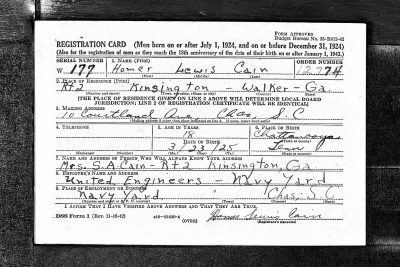 FORM APPROVED
Budget Bureau No. 33-R012-42
REGISTRATION CARD (Men born on or after July 1, 1924, and on or before December 31, 1924)
(Also for the registration of men as they reach the 18th anniversary of the date of their birth on or after January 1, 1943.)
SERIAL NUMBER 1. NAME (Print) ORDER NUMBER
W 177 Homer Lewis Cain 12774
(First) (Middle) (Last)
2. PLACE OF RESIDENCE (Print)
Rt 2 Kinsington - Walker - Ga.
[THE PLACE OF RESIDENCE GIVEN ON LINE 2 ABOVE WILL DETERMINE LOCAL BOARD
JURISDICTION; LINE 2 OF REGISTRATION CERTIFICATE WILL BE IDENTICAL]
3. MAILING ADDRESS
10 Courtland Ave Chas S.C
4. TELEPHONE 5. AGE IN YEARS 6. PLACE OF BIRTH
18 Chattanooga
DATE OF BIRTH (Town or county)
3 / 23 / 25 Tenn
(Exchange) (Number) (Mo.) (Day) (Yr.) (State or country)
7. NAME AND ADDRESS OF PERSON WHO WILL ALWAYS KNOW YOUR ADDRESS
Mrs. S.A. Cain - Rt 2 Kinsington, Ga
8. EMPLOYER'S NAME AND ADDRESS
United Engineers - Navy Yard
9. PLACE OF EMPLOYMENT OR BUSINESS
Navy Yard Chas, S.C
I AFFIRM THAT I HAVE VERIFIED ABOVE ANSWERS AND THAT THEY ARE TRUE.
DSS Form 1 (Rev. 11-16-42) (OVER) Homer Lewis Cain
(Registrant's signature)